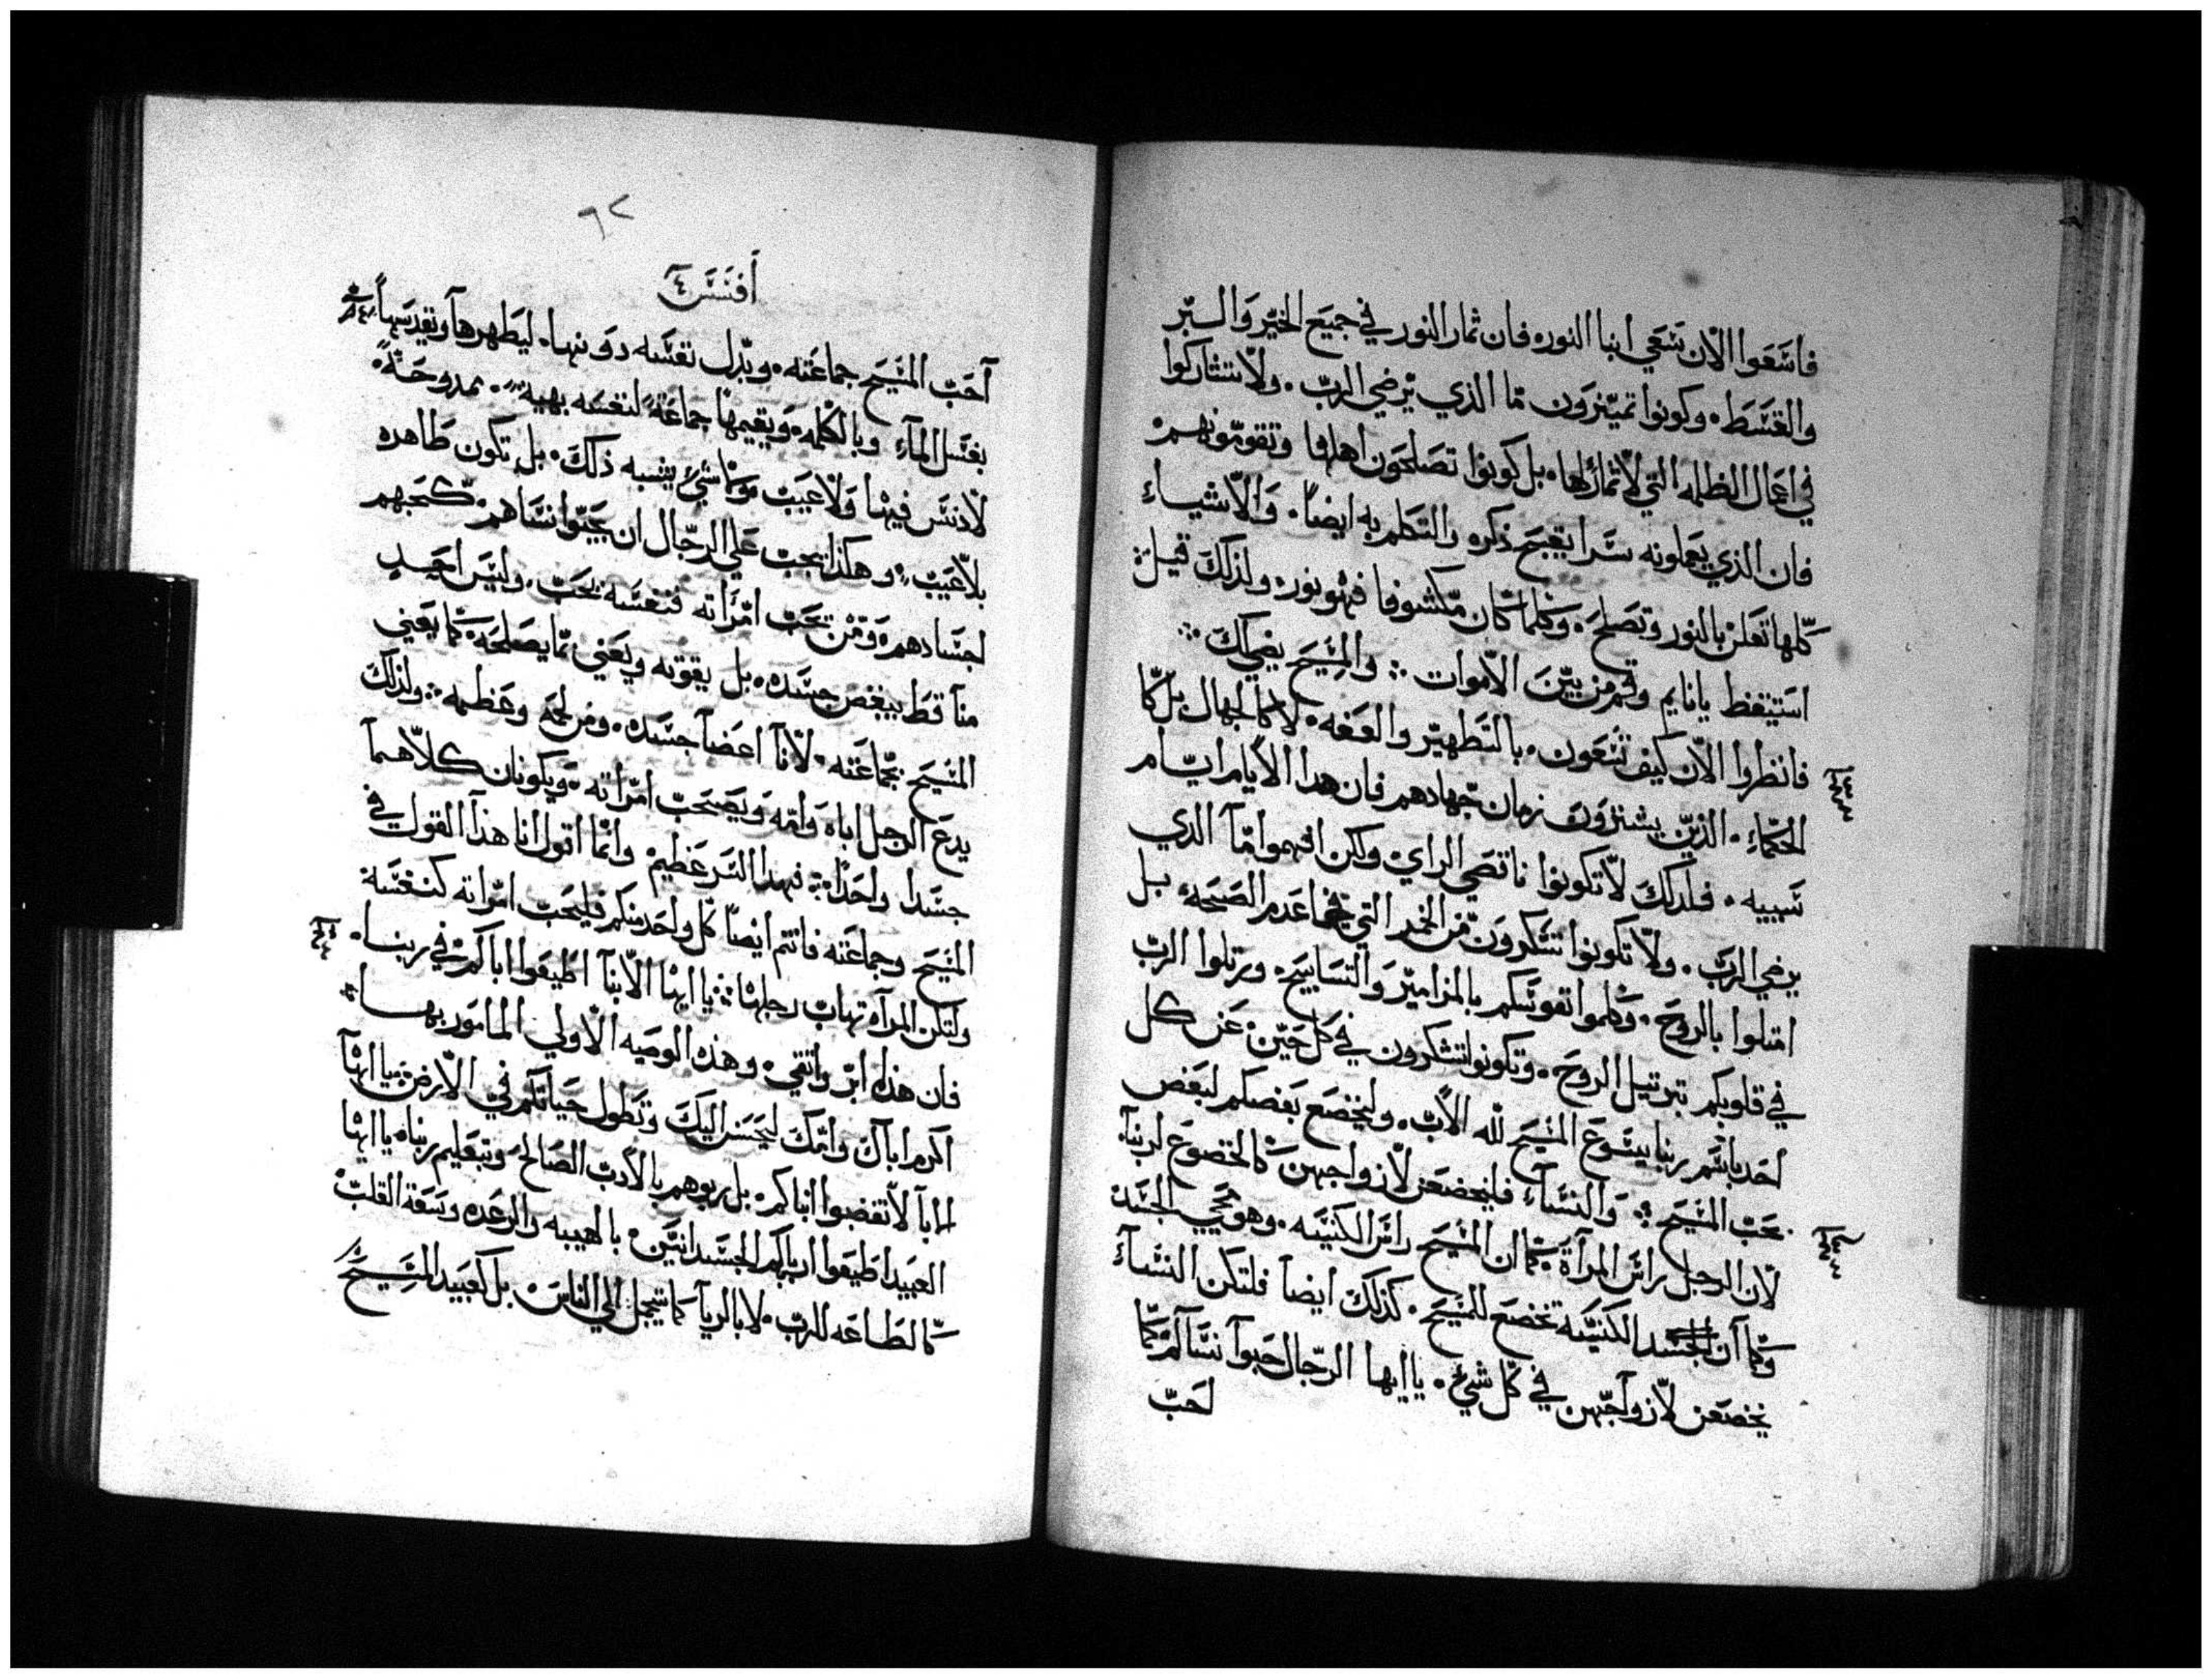 فاسَعَوا الاٰن سَعَي ابنا النوره فان ثمار النور في جميَع الخيّر وَالبّر
والقسَط. وكونوا تميّزوَن مّا الذي يّرضي الربّ. ولاّ تشاركوا
في اعمال الظلمه التي لاّ ثمار لها. بل كونوا تصَلحَون اهلها وتقومّونهم
فان الذي يعَملونه سَرا يقبحَ ذكره والتكلم به ايضاً. وَالاّشياء
كلها تعَلن بالنور وتصَلحَ. وكلما كان مّكشوفا فهو نور. ولذلكَ قيل:
استيَقظ يانايم وقم من بيّنَ الاّموات ÷ والمسَيحَ يضي لكَ ÷
فانظروا الاّن كيف تسَعَون. بالتطهيّر والعَفه. لا كالجهال بل كما
الحكماء. الذيّن يشترَون زمان جهادهم فان هدا الاّيام ايّام
شَبيبه. فلدلكَ لاّ تكونوا ناقصَي الراي ولكن افهموا مّا الذي
يرضي الربّ. ولاّ تكونوا تسَكروَن مّن الخمر التي فيها عَدم الصَحَه. بل
امتلوا بالروحَ. وكلموا نفوسَكم بالمزاميّر وَالتسَابيحَ. ورتلوا الربّ
في قلوبكم بترتيل الروحَ. وتكونوا تشكرون في كل حَيّن عَن كل
احَد باسَم ربنا يسَوعَ المسَيحَ لله الاّبّ. وليخضعَ بعَضكم لبعَض
بحَبّ المسَيحَ ÷ وَالنسَاء فليخضعَن لاّزواجهن كالخضوعَ لربنا.
لاّن الرجل راسَ المرآة كما ان المسَيحَ راسَ الكنيسَه. وهو محَيي الجسَد
وكما آن الكنيسَه تخضعَ للمسَيحَ. كذلكَ ايضاً فلتكن النسَآء
يخضعَن لاّزواجّهن في كل شيء. يا ايها الرجّال حَبوا نسَآلم كما
احَبّ
٦٢
أفسَسَ ٤
آحَبّ المسَيحَ جماعَته. وبذل نفسَه دوَنها. ليَطهرهآ ويقدسَهاً
بغسَل المآء وبالكلمه. وَيقيمها جماعَةً لنفسَه بهيةً. ممدوحَةً.
لاّ دنسَ فيها وَلاّ عَيبَ. وَلا شيء يشبه ذلكَ. بل تكون طَاهره
بلاّ عَيبَ. وهكذا يجبَ عَلي الرجّال ان يحَبّوا نسَاهم. كحَبهم
اجسَادهم. وَمّن يحَبّ امّرأته فنفسَه يحَبّ. وليسَ احَد
منآ قطَ يبغض جسَده. بل يقوته ويعَني بمّا يصَلحَه. كما يعَني
المسَيحَ بجّماعَته. لاّنآ اعَضآ جسَده. ومن لحَمه وعَظمه ÷ ولذلكَ
يدعَ الرجل اباه وَامّه وَيصَحَبّ امّرآته. ويكونان كلاّهمآ
جسَدا واحَدًا ÷ فهدا السَر عَظيمْ وانما اقول انا هذآ القول في
المسَيحَ وجماعَته فانتم ايضاً كل واحَد منكم فليحَبّ امّرآته كنفسَه
ولتكن المرآه تهابّ رجلها ÷ يا ايها الاّبنآ اطَيعَوا اباكم في ربنا.
فان هذا ابرّ واتقي. وهذه الوصَيه الاّولي المامَور بها.
اكرم اباكَ وامّكَ ليحَسَن اليكَ وتطَول حَياتكم في الاّرض ÷ يا ايها
الابآ لاّ تغضبوا ابناكم. بل ربوهم بالاّدبّ الصَالحَ وبتعَليم ربنا. يا ايها
العَبيد اطَيعَوا اربابكم الجسَدانييّن. بالهيبه والرعَده وسَعَة القلبّ
كالطَاعَه للربّ. لا بالريآ كما يتجمل الي الناسَ. بل كعَبيد المسَيحَ